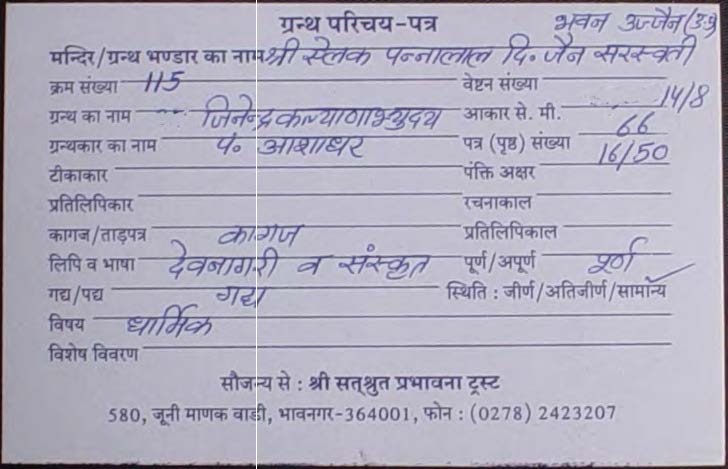 ग्रन्थ परिचय-पत्र भवन उज्जैन (उ.प्र)
मन्दिर/ग्रन्थ भण्डार का नाम श्री ऐलक पन्नालाल दि. जैन सरस्वती
क्रम संख्या 115 वेष्टन संख्या
ग्रन्थ का नाम जिनेन्द्रकल्याणाभ्युदय आकार से. मी. 14/8
ग्रन्थकार का नाम पं. आशाधर पत्र (पृष्ठ) संख्या 66
टीकाकार पंक्ति अक्षर 16/50
प्रतिलिपिकार रचनाकाल
कागज/ताड़पत्र कागज प्रतिलिपिकाल
लिपि व भाषा देवनागरी व संस्कृत पूर्ण/अपूर्ण पूर्ण
गद्य/पद्य गद्य स्थिति : जीर्ण/अतिजीर्ण/सामान्य
विषय धार्मिक
विशेष विवरण
सौजन्य से : श्री सत्श्रुत प्रभावना ट्रस्ट
580, जूनी माणक वाडी, भावनगर-364001, फोन : (0278) 2423207